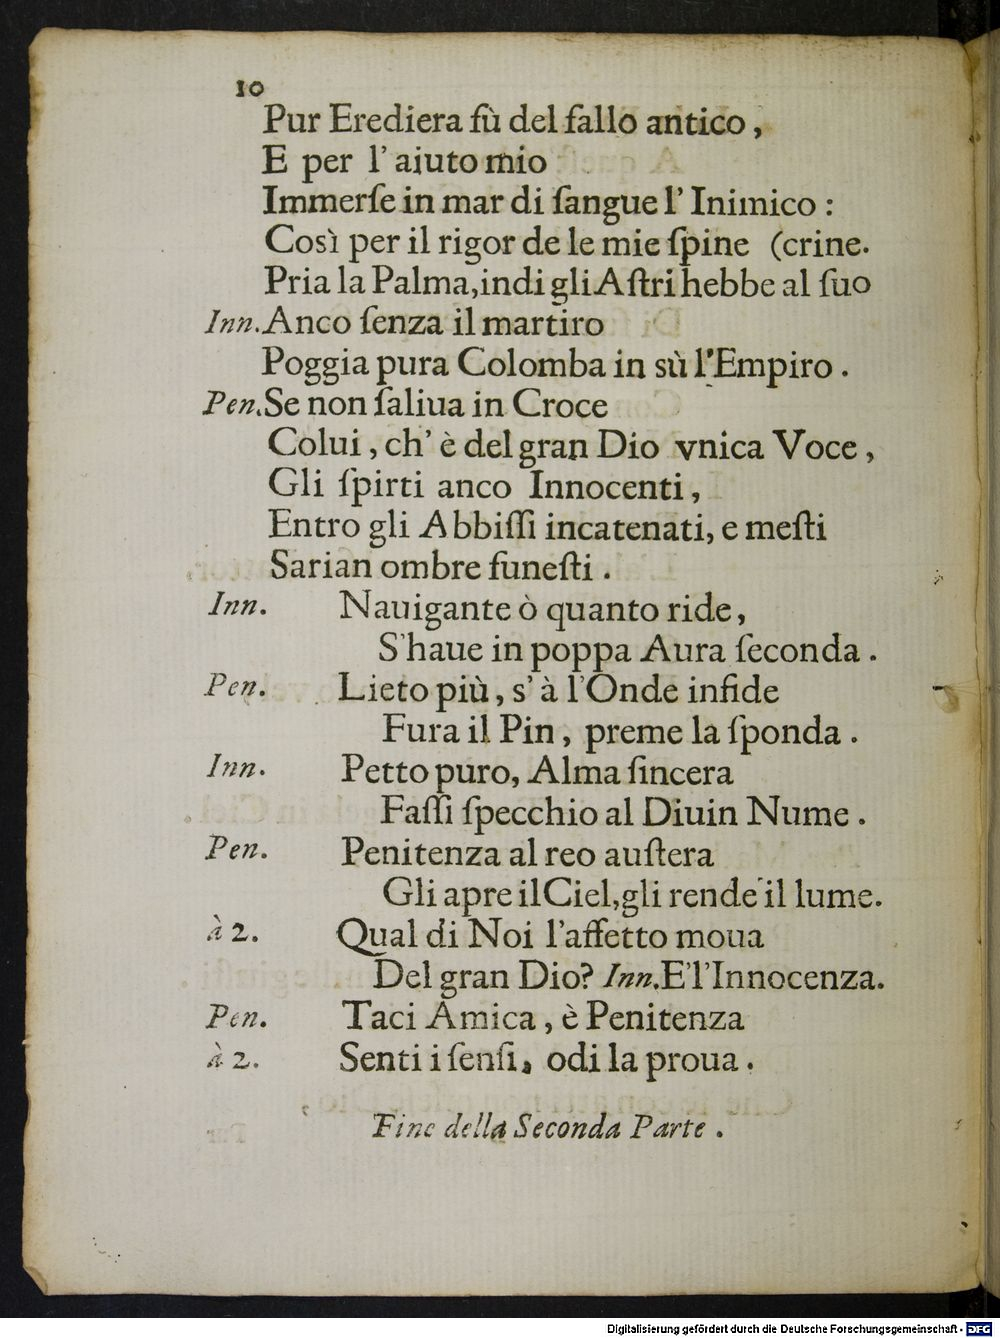 10
Pur Erediera fù del fallo antico,
E per l' aiuto mio
Immerſe in mar di ſangue l' Inimico :
Così per il rigor de le mie ſpine (crine.
Pria la Palma, indi gli Aſtri hebbe al ſuo
Inn. Anco ſenza il martiro
Poggia pura Colomba in sù l'Empiro .
Pen. Se non ſaliua in Croce
Colui, ch' è del gran Dio vnica Voce,
Gli ſpirti anco Innocenti,
Entro gli Abbiſſi incatenati, e meſti
Sarian ombre funeſti .
Inn. Nauigante ò quanto ride,
S'haue in poppa Aura ſeconda .
Pen. Lieto più, s' à l'Onde infide
Fura il Pin, preme la ſponda .
Inn. Petto puro, Alma ſincera
Faſſi ſpecchio al Diuin Nume .
Pen. Penitenza al reo auſtera
Gli apre il Ciel, gli rende il lume.
à 2. Qual di Noi l'affetto moua
Del gran Dio? Inn. E'l'Innocenza.
Pen. Taci Amica, è Penitenza
à 2. Senti i ſenſi, odi la proua .
Fine della Seconda Parte .
Digitalisierung gefördert durch die Deutsche Forschungsgemeinschaft - DFG